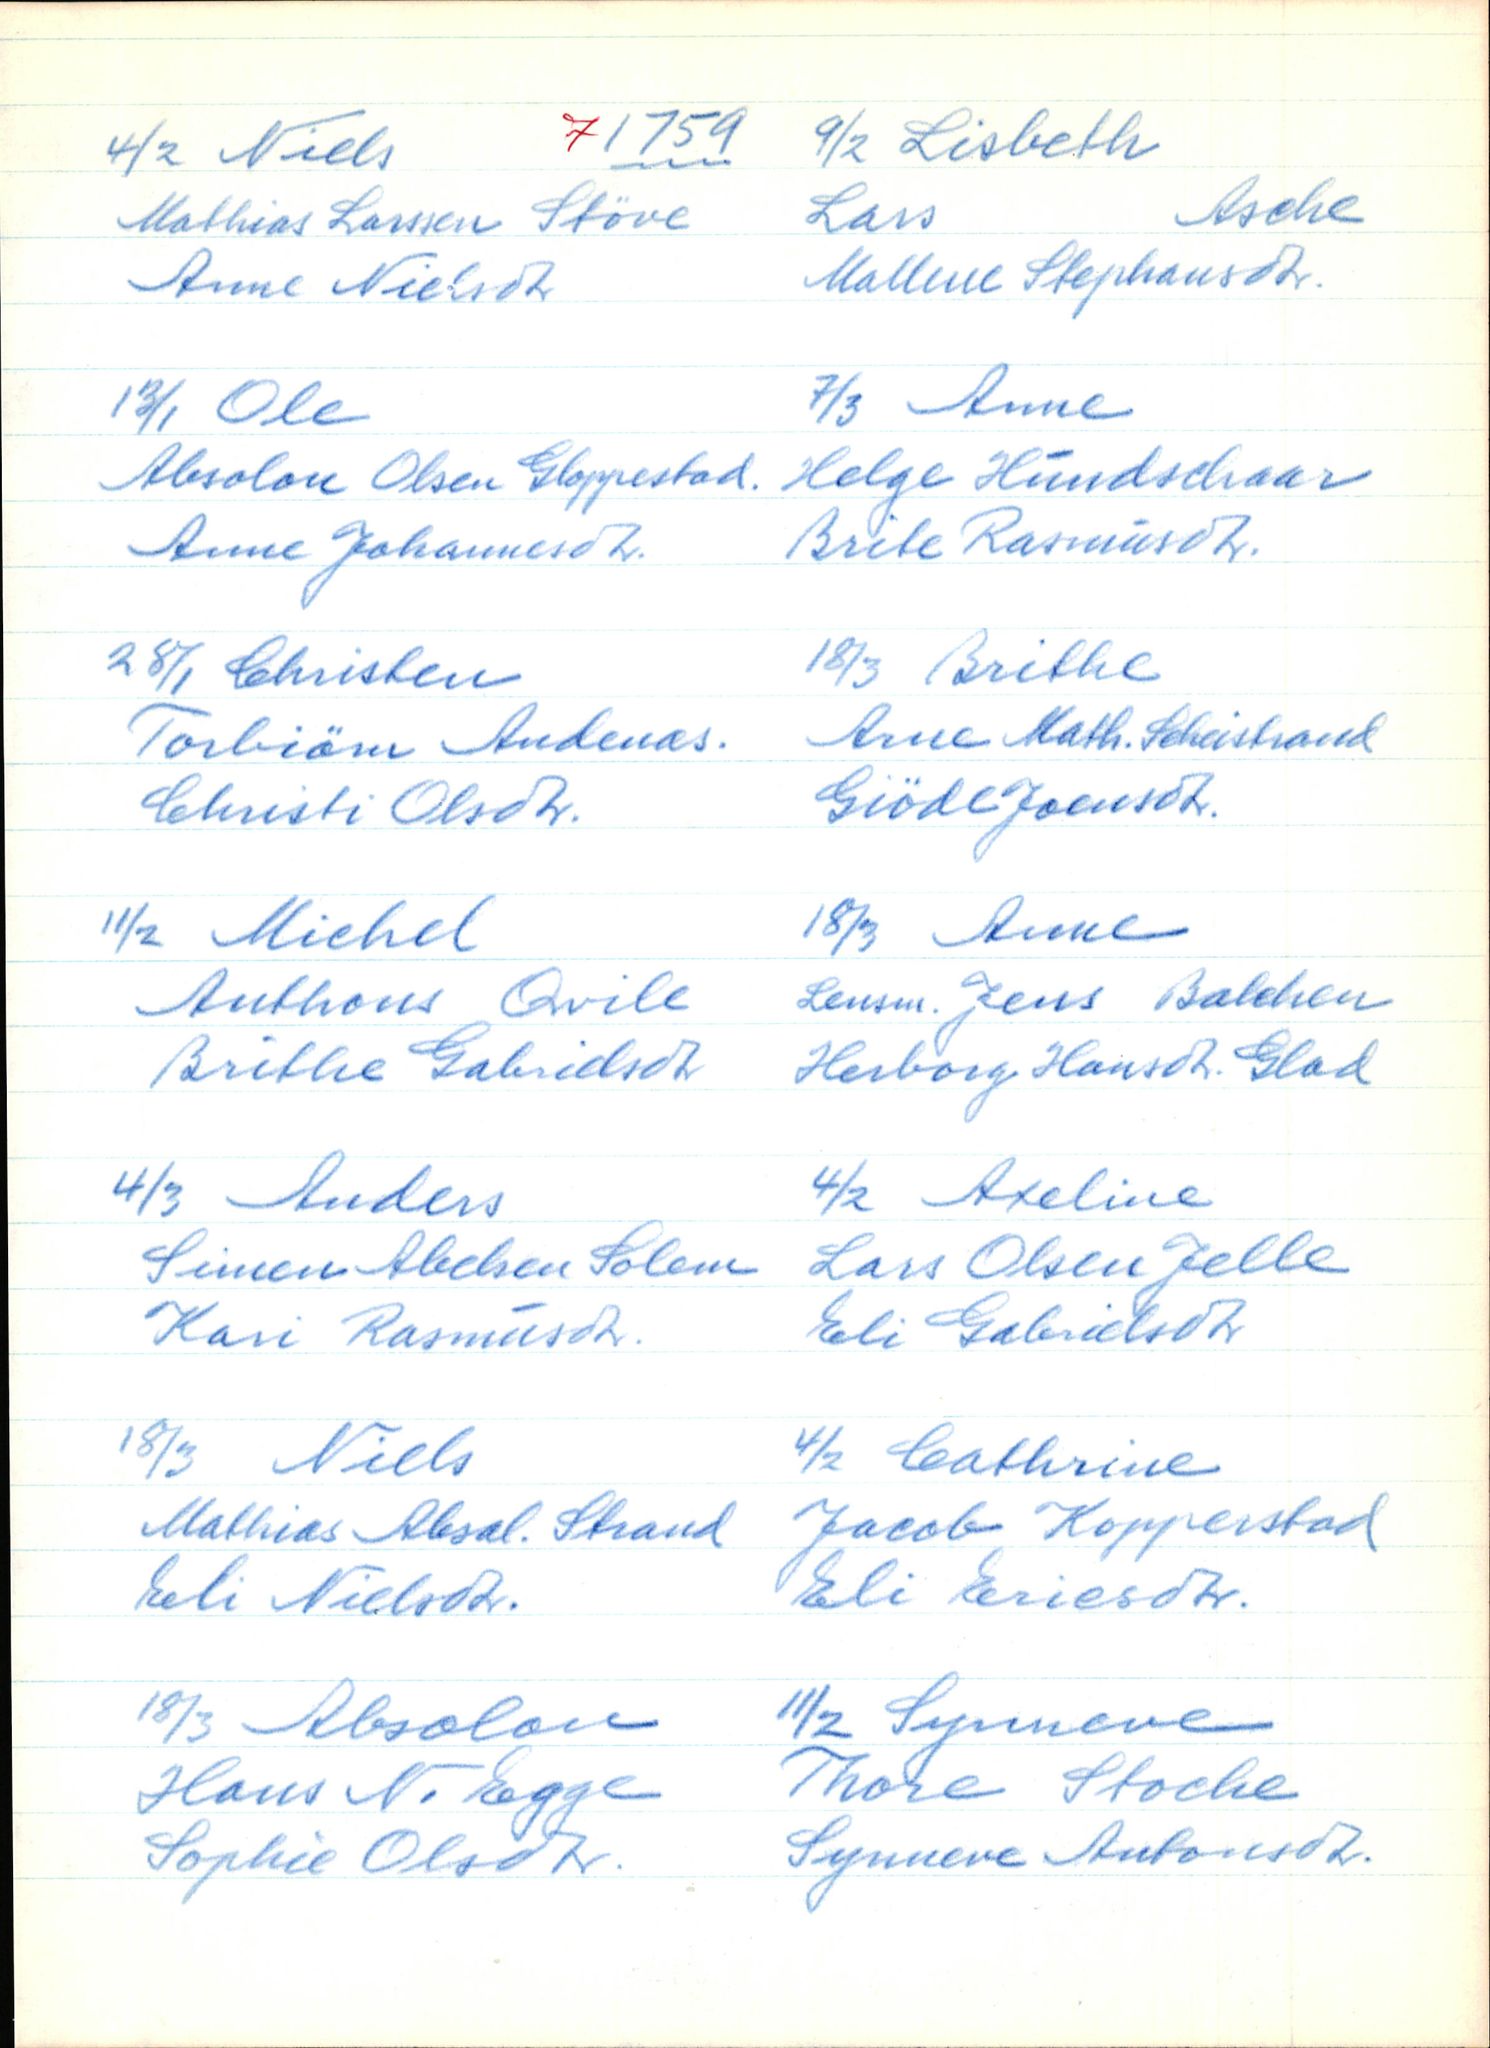 4/2 Niels 7 1759
Mathias Larssen Støve
Anne Nielsdtr

13/1 Ole
Absolon Olsen Gloppestad.
Anne Johannesdtr.

28/1 Christen
Torbiörn Andenas.
Christi Olsdtr.

11/2 Michel
Anthons Qvile
Brithe Gabrielsdtr

4/3 Anders
Simen Abelsen Solem
Kari Rasmusdtr.

18/3 Niels
Mathias Absal. Strand
Eli Nielsdtr.

18/3 Absolon
Hans N. Egge
Sophie Olsdtr.

9/2 Lisbeth
Lars Asche
Mallene Stephansdtr.

7/3 Anne
Helge Hundschaar
Brite Rasmusdtr.

18/3 Brithe
Arne Math. Scheistrand
Giöde Joensdtr.

18/3 Anne
Lensm. Jens Balchen
Herborg Hansdtr. Glad

4/2 Axeline
Lars Olsen Jelle
Eli Gabrielsdtr

4/2 Cathrine
Jacob Kopperstad
Eli Ericsdtr.

11/2 Synneve
Thore Stoche
Synneve Antonsdtr.